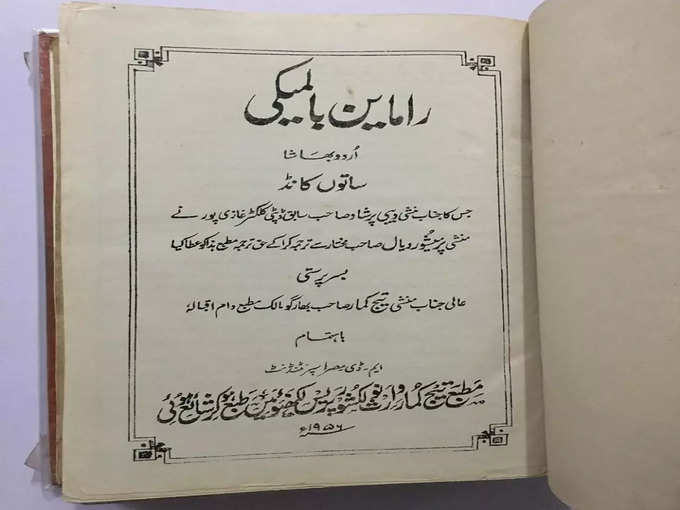 راماین بالمیکی
اُردو بھاشا
ساتوں کانڈ
جس کا جناب منشی دیبی پرشاد صاحب سابق ڈپٹی کلکٹر غازی پور نے
منشی پرمیشور دیال صاحب مختار سے ترجمہ کرا کے حق ترجمہ مطبع ہذا کو عطا کیا
بسرپرستی
عالی جناب منشی تیج کمار صاحب بھارگو مالک مطبع دام اقبالہٗ
باہتمام
ایم۔ڈی مصرا سپرنٹنڈنٹ
مطبع تیج کمار وارث نولکشور پریس لکھنؤ میں طبع ہو کر شائع ہوئی
۱۹۵۶ء